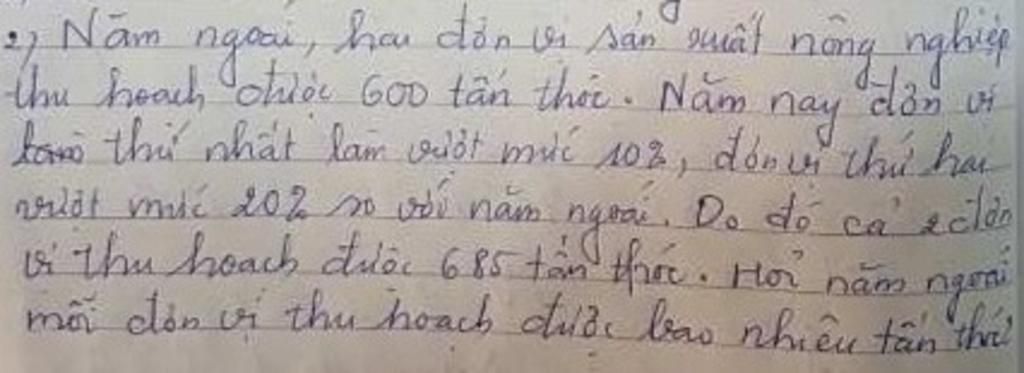 2) Năm ngoái, hai đơn vị sản xuất nông nghiệp
thu hoạch được 600 tấn thóc. Năm nay đơn vị
thứ nhất làm vượt mức 10%, đơn vị thứ hai
vượt mức 20% so với năm ngoái. Do đó cả 2 đơn
vị thu hoạch được 685 tấn thóc. Hỏi năm ngoái
mỗi đơn vị thu hoạch được bao nhiêu tấn thó